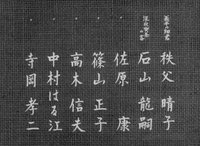 秩父晴子
石山龍嗣
佐原康
篠山正子
高木信夫
中村はる江
寺岡孝二